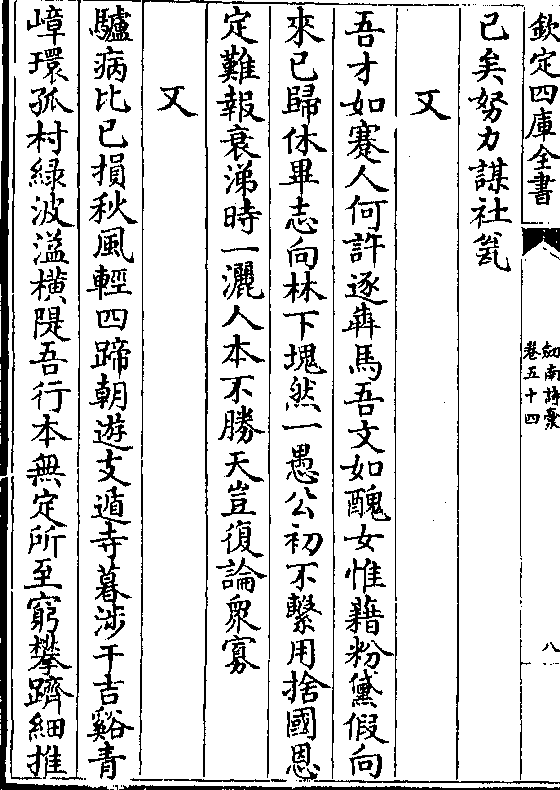 欽定四庫全書
劒南詩藁
卷五十四
八
已矣努力謀社瓮
又
吾才如蹇人何許逐犇馬吾文如醜女惟藉粉黛假向
來已歸休畢志向林下塊然一愚公初不繫用捨國恩
定難報衰涕時一灑人本不勝天豈復論衆寡
又
驢病比已損秋風輕四蹄朝遊支遁寺暮涉干吉谿青
嶂環孤村緑波溢横隄吾行本無定所至窮攀躋細推